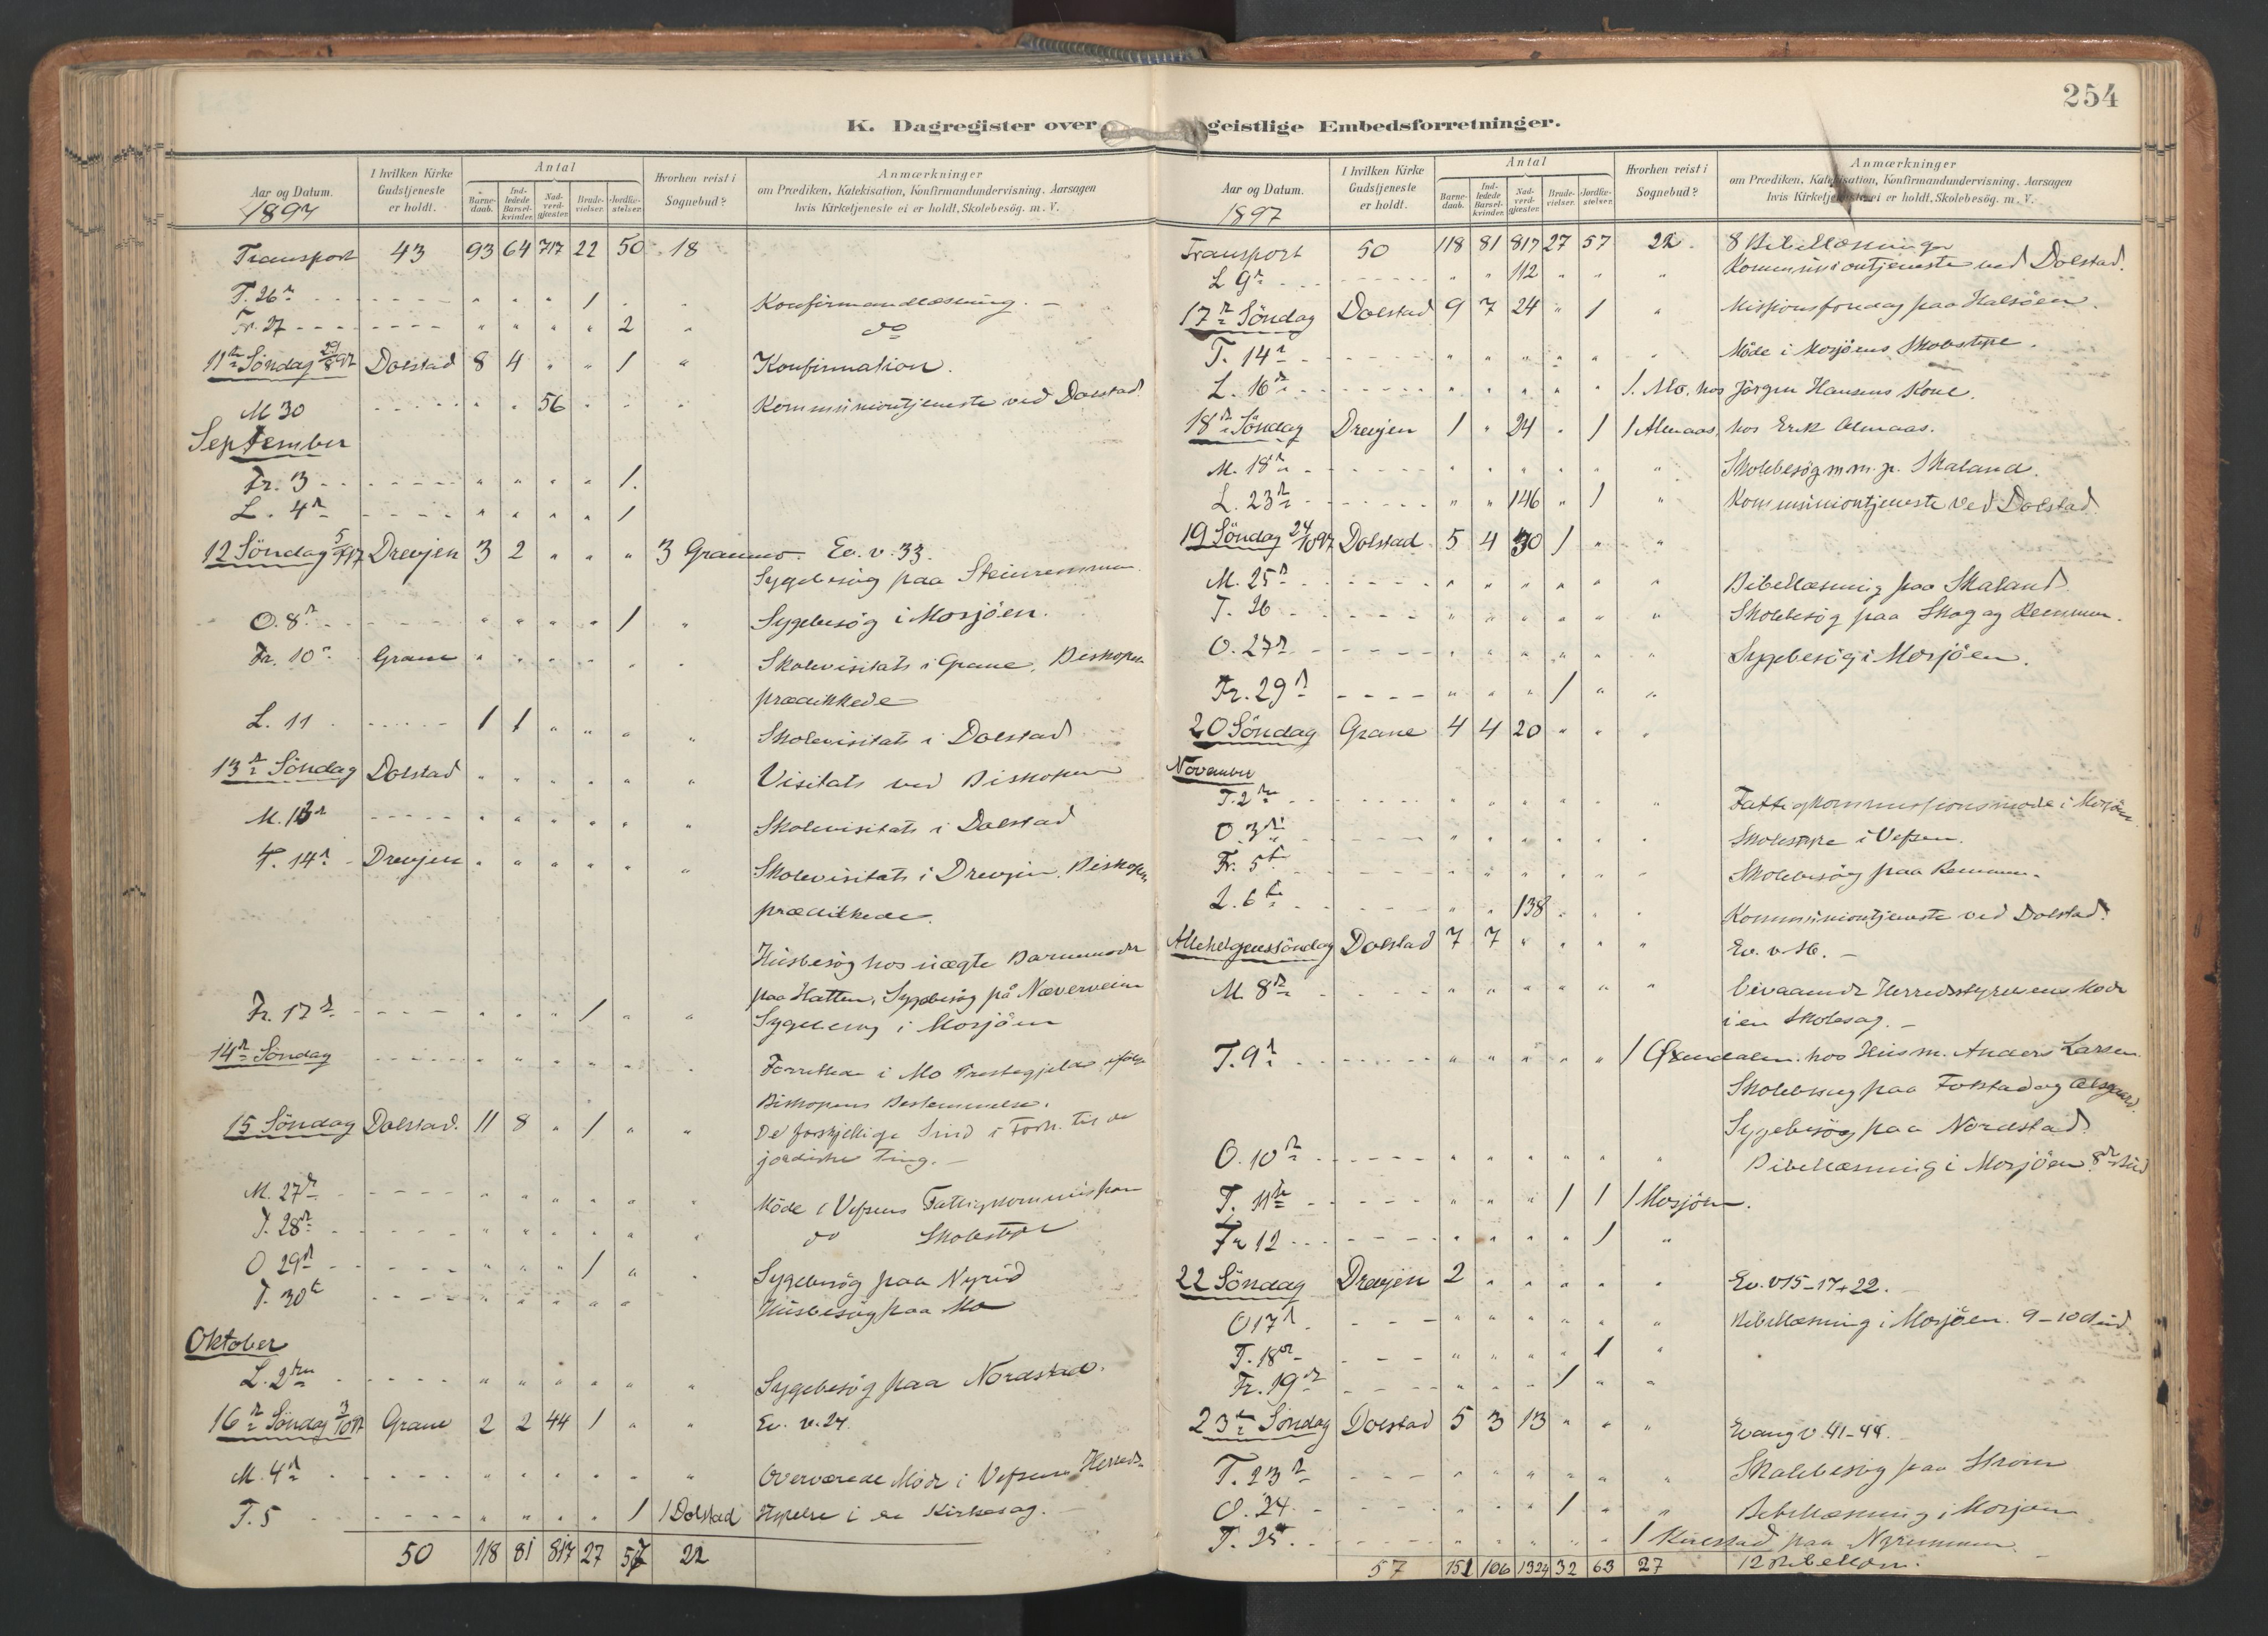 254
K. Dagregister over geistlige Embedsforretninger.
Aar og Datum. 1897 | I hvilken Kirke Gudstjeneste er holdt. | Antal | Barne-daab. | Ind-ledede Barsel-kvinder. | Nad-verd-gjester. | Brude-vielser. | Jordfæ-stelser. | Hvorhen reist i Sognebud? | Anmærkninger om Prædiken, Katekisation, Konfirmandundervisning. Aarsagen hvis Kirketjeneste ei er holdt, Skolebesøg. m. V.
Transport 43 93 64 717 22 50 18
T. 26de - - - " " " 1 . " Konfirmandlæsning. -
Fr. 27 - - - " " " " 2 " do
11te Söndag 29/8 97 Dolstad 8 4 " " 1 " Konfirmation.
M 30 - - - " " 56 " " " Kommuniontjeneste ved Dolstad.
September
Fr. 3 - - - " " " " 1.
L. 4de - - - " " " " 1
12 Söndag 5/9 97 Drevjen 3 2 " " " 3 Granmo. Ev. v. 33.
Sygebesøg paa Steinremmen.
O. 8de - - - " " " " 1 " Sygebesög i Mosjöen.
Fr. 10de Grane " " " " " " Skolevisitats i Grane. Biskopen
prædikkede
L. 11 - - - 1 1 " " " " Skolevisitats i Dolstad
13de Söndag Dolstad " " " " " " Visitats ved Biskopen
M. 13de - - - " " " " " " Skolevisitats i Dolstad
T. 14de - Drevjen " " " " " " Skolevisitats i Drevjen. Biskopen
prædikkede.
Husbesög hos uægte Barnemoder
paa Hatten. Sygebesög på Næverveien
Fr. 17de - - - " " " 1 " " Sygebesøg i Mosjöen
14de Söndag - - - " " " " " " Forrettede i Mo Prestegjeld ifölge
Biskopens Bestemmelse.
15 Söndag Dolstad. 11 8 " 1 " " De forskjellige Sind i Forh. til de
jordiske Ting. -
M. 27de - - - " " " " " " Möde i Vefsens Fattigkommission
T. 28de - - - " " " " " " do Skolestyre
O 29de - - - " " " 1 " " Sygebesög paa Nyrud
T. 30te - - - " " " " " Husbesög paa Mo
Oktober
L. 2den - - - " " " " " " Sygebesög paa Nordstad.
16de Söndag 3/10 97 Grane 2 2 44 1 " " Ev. v. 24.
M. 4de - - - " " " " " " Overværede Möde i Vefsens Herreds-
T. 5 - - - " " " " 1 1 Dolstad styrelse i en Kirkesag. -
50 118 81 817 27 57 22
Aar og Datum. 1897 | I hvilken Kirke Gudstjeneste er holdt. | Antal | Barne-daab. | Ind-ledede Barsel-kvinder. | Nad-verd-gjester. | Brude-vielser. | Jordfæ-stelser. | Hvorhen reist i Sognebud? | Anmærkninger om Prædiken, Katekisation, Konfirmandundervisning. Aarsagen hvis Kirketjeneste ei er holdt, Skolebesøg. m. V.
Transport 50 118 81 817 27 57 22. 8 Bibellæsninger
L 9de - - - " " 112 " " " Kommuniontjeneste ved Dolstad.
17de Söndag Dolstad 9 7 24 " 1 " Missionsforedrag paa Halsöen.
T. 14de - - - " " " " " " Möde i Mosjöens Skolestyre.
L. 16de - - - " " " " " 1. Mo. hos Jörgen Hansens Kone.
18de Söndag Drevjen 1 " 24 " 1 1 Almaas, hos Erik Almaas.
M. 18de - - - " " " " " " Skolebesög m.m. p. Skaland.
L. 23de - - - " " 146 " 1 " Kommuniontjeneste ved Dolstad.
19 Söndag 24/10 97 Dolstad 5 4 30 1 " "
M. 25de - - - " " " " " " Bibellæsning paa Skaland.
T. 26 - - - " " " " " " Skolebesög paa Skog og Remmen.
O. 27de - - - " " " " " " Sygebesög i Mosjöen.
Fr. 29de - - - " " " 1 " "
20 Söndag Grane 4 4 20 " " "
November
T. 2den - - - " " " " " " Fattigkommissionsmöde i Mosjöen.
O. 3die - - - " " " " " " Skolestyre i Vefsen.
Fr. 5te - - - " " " " " " Skolebesög paa Remmen.
L. 6te - - - " " 138 " " " Kommuniontjeneste ved Dolstad.
Allehelgenssöndag Dolstad 7 7 " " " " Ev. v. 16. -
M. 8de - - - " " " " " " bivaanede Herredsstyrelsens Möde
i en Skolesag. -
T. 9de - - - " " " " " 1 Öxendalen. hos Husm. Anders Larsen.
Skolebesøg paa Forstad og Alsgaard.
Sygebesög paa Nordstad.
O. 10de - - - " " " " " " Bibellæsning i Mosjöen.
T. 11te - - - " " " 1 1 1 Mosjöen.
Fr 12 - - - " " " " 1 "
22 Söndag Drevjen 2 " " " " " Ev. v 15-17+22.
O 17de - - - " " " " " " Bibellæsning i Mosjöen. 9-10
T. 18de - - - " " " " 1 "
Fr. 19de - - - " " " 1 " "
23de Söndag Dolstad 5 3 13 " " " Evang v. 41-44.
T. 23de - - - " " " " " " Skolebesög paa Strom
O. 24. - - - " " " 1 " " Bibellæsning i Mosjöen
T. 25de - - - " " " " " 1 Kulstad paa Nyremmen.
57 151 106 1324 32 63 27 12 Bibellæsn.